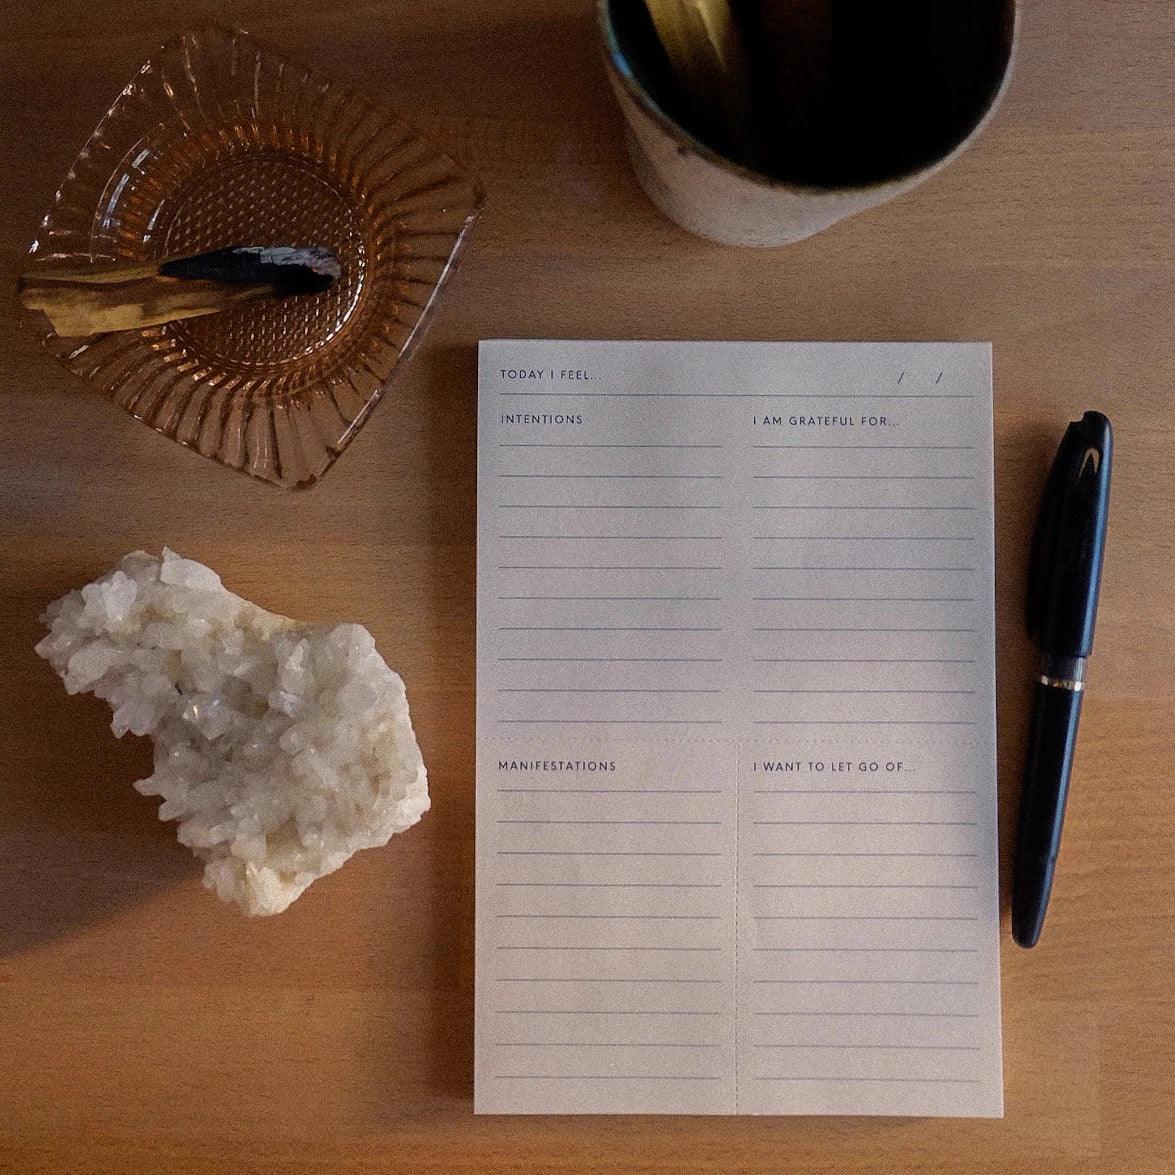 TODAY I FEEL... / /
INTENTIONS
I AM GRATEFUL FOR...
MANIFESTATIONS
I WANT TO LET GO OF...